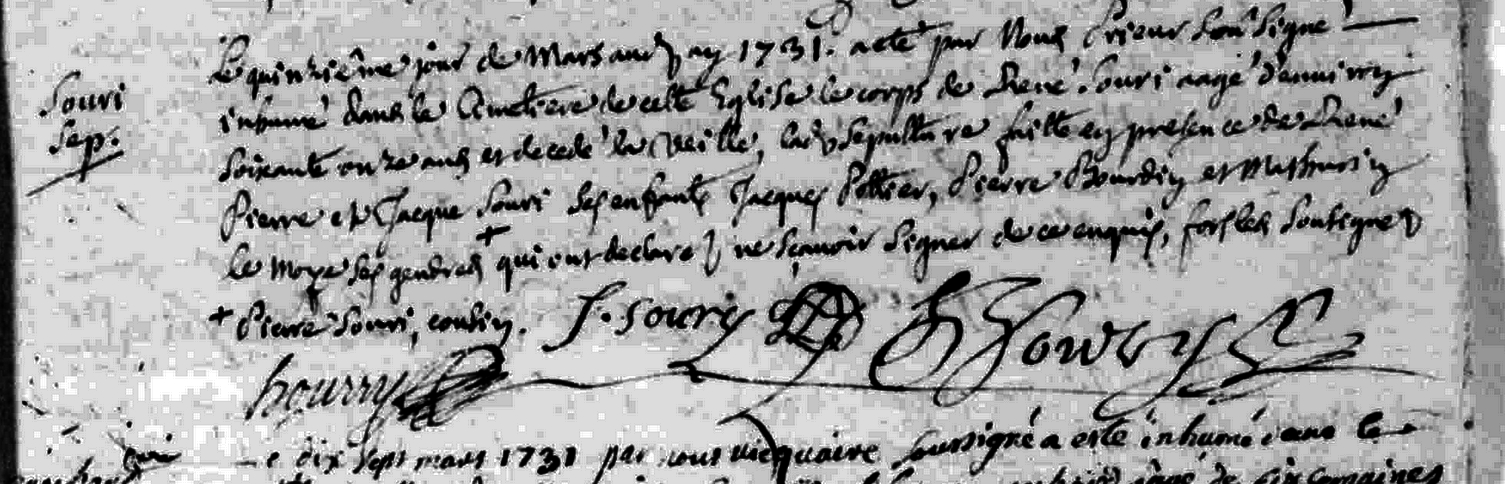 Souri
Sep.
Le quinziême jour de Mars aud an 1731. a eté par Nous Prieur Soussigné
inhumé dans le Cimetiere de cette Eglise le corps de René Souri aagé d'environ
soixante onze ans et decedé la veille, lad Sepulture faitte en presence de René
Pierre et Jacque Souri ses enfants Jacques Pottier, Pierre Bourdin et Mathurin
le Moyne ses gendres + qui ont declaré ne sçavoir signer de ce enquis, fors les soussignes
+ Pierre Souri, cousin. J. Soury R Soury
hourry
dix sept mars 1731 par nous vicquaire soussigné a esté inhumé dans le
âgé de six semaines